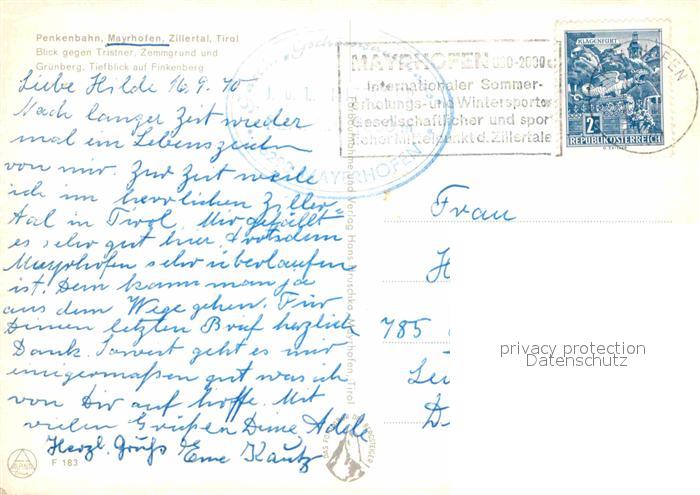 Penkenbahn, Mayrhofen, Zillertal, Tirol
Blick gegen Tristner, Zemmgrund und
Grünberg, Tiefblick auf Finkenberg
Liebe Hilde 16.9.70
Nach langer Zeit wieder
mal ein Lebenszeichen
von mir. Zur Zeit weile
ich im herrlichen Ziller-
tal in Tirol. Mir gefällt
es sehr gut hier, trotzdem
Mayrhofen sehr überlaufen
ist. Dem kann man ja
aus dem Wege gehen. Für
Deinen letzten Brief herzlich
Dank. Soweit geht es mir
einigermaßen gut was ich
von Dir auf hoffe. Mit
vielen Grüßen Deine Adele
Herzl. Grüße
F 183
MAYRHOFEN 630-2000
Internationaler Sommer-
erholungs- und Wintersportort
Gesellschaftlicher und spor
licher Mittelpunkt d. Zillertales
MAYRHOFEN
KLAGENFURT
2
REPUBLIK ÖSTERREICH
Frau
H
785
D-
privacy protection
Datenschutz